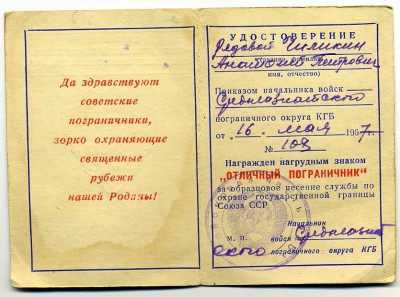 Да здравствуют
советские
пограничники,
зорко охраняющие
священные
рубежи
нашей Родины!
УДОСТОВЕРЕНИЕ
Рядовой Чиликин
Анатолий Петрович
имя, отчество)
Приказом начальника войск
Среднеазиатского
пограничного округа КГБ
от 16 мая 1967г.
№ 103
Награжден нагрудным знаком
"ОТЛИЧНЫЙ ПОГРАНИЧНИК"
за образцовое несение службы по
охране государственной границы
Союза ССР
Начальник
м. п. войск Среднеазиат
ского пограничного округа КГБ